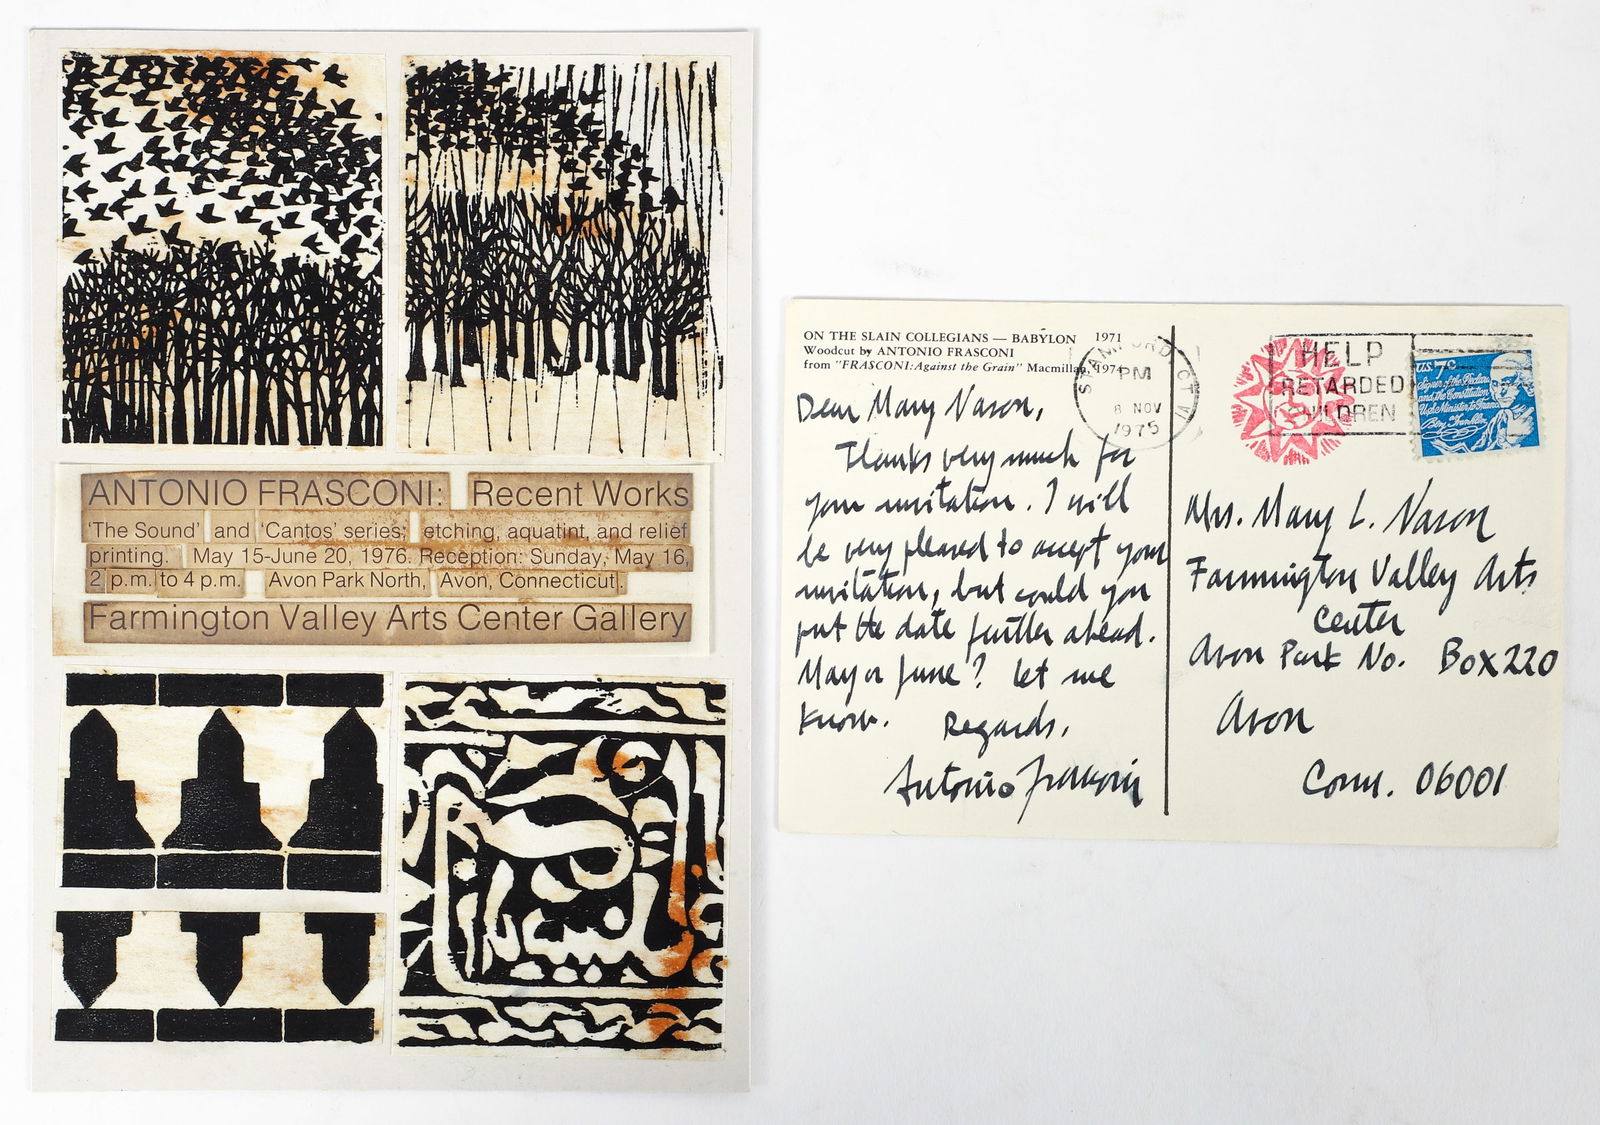 ANTONIO FRASCONI: Recent Works
'The Sound' and 'Cantos' series; etching, aquatint, and relief
printing. May 15-June 20, 1976. Reception: Sunday, May 16,
2 p.m. to 4 p.m. Avon Park North, Avon, Connecticut.
Farmington Valley Arts Center Gallery
ON THE SLAIN COLLEGIANS — BABYLON 1971
Woodcut by ANTONIO FRASCONI
from "FRASCONI: Against the Grain" Macmillan, 1974
Dear Mary Nason,
Thanks very much for
your invitation. I will
be very pleased to accept your
invitation, but could you
put the date further ahead.
May or June? Let me
know. Regards,
Antonio Frasconi
STAMFORD CT
PM
8 NOV
1975
HELP
RETARDED
CHILDREN
U.S. 7c
Signer of the Declaration
and the Constitution
U.S. Minister to France
Benj. Franklin
Mrs. Mary L. Nason
Farmington Valley Arts
Center
Avon Park No. Box 220
Avon
Conn. 06001